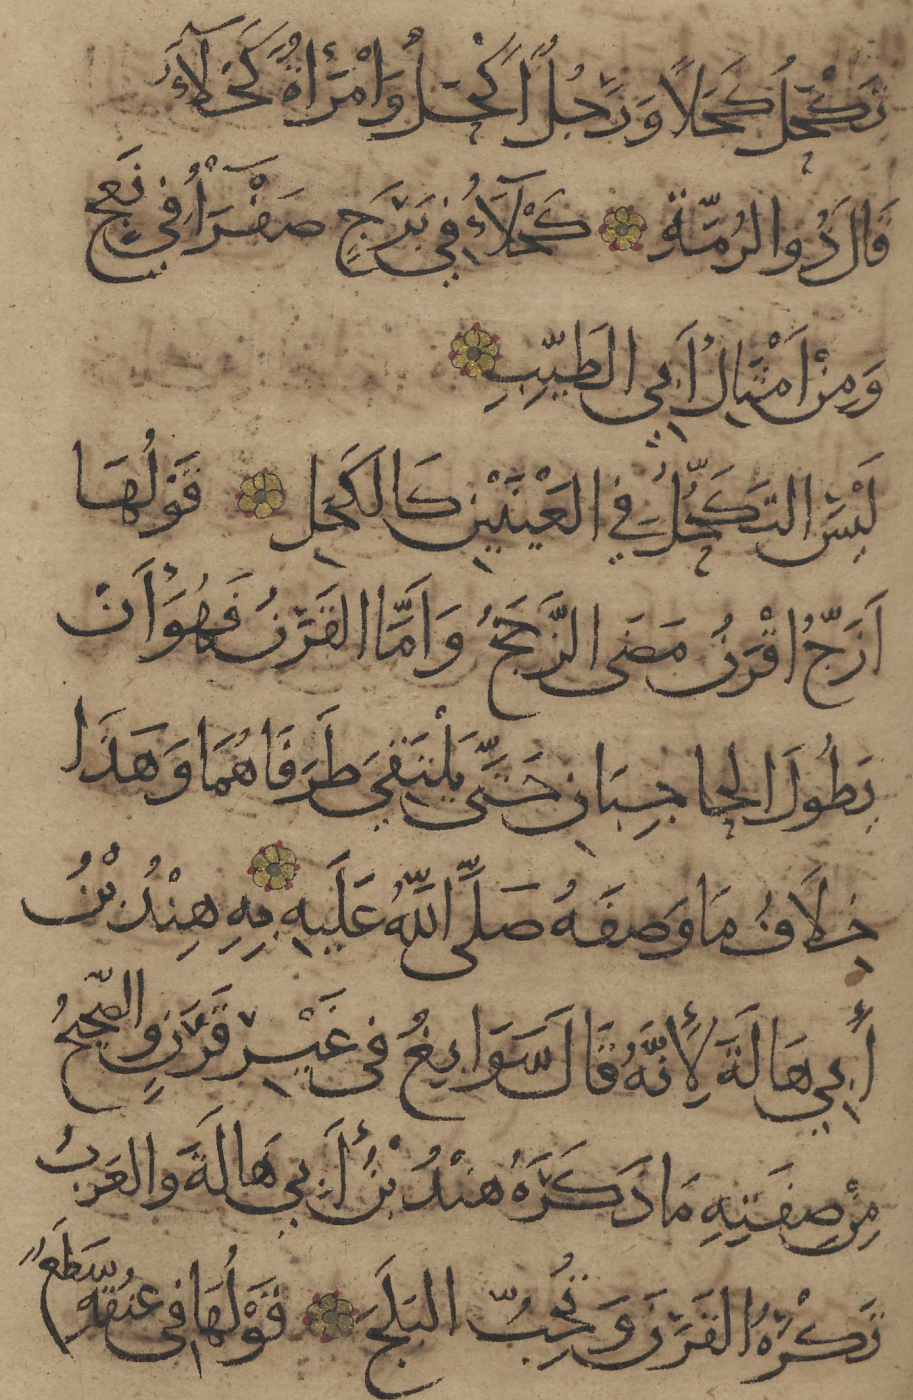 تَكْحَلُ كَحَلًا وَرَجُلٌ اَكْحَلُ وَامْرَأَةٌ كَحْلَآءُ
قَالَ ذُو الرُمَّة كَحْلَآءُ في بَرَجٍ صَفْرَآءُ فِي نَعَجٍ
وَمِنْ اَمْثَالِ اَبِي الطَيِّبِ
لَيْسَ التَكَحُّلُ فِي العَيْنَيْنِ كَالكَحَلِ قَوْلُهَا
اَزَجُّ اقْرَنُ مَضَى الزَّجَجُ وَاَمَّا القَرَنُ فَهُوَ اَنْ
يَطُولَ الحاجِبَانِ حَتَّى يَلْتَقِيَ طَرَفَاهُمَا وَهَذَا
خِلَافُ مَا وَصَفَهُ صَلَّى اللّٰهُ عَلَيهِ بِهِ هِنْدُ بْنُ
أَبِي هَالَةَ لِأَنَّهُ قَالَ سَوَابِغُ فِي غَيْرِ قَرَنٍ والصّحِيحُ
مِنْ صِفَتِهِ مَا ذَكَرَهُ هِنْدُ بْنُ أَبِي هَالَةَ وَالعَرَبُ
تَكْرَهُ القَرَنَ وَتُحِبُّ البَلَجَ قَوْلُهَا فِي عُنُقِهِ سَطَعٌ